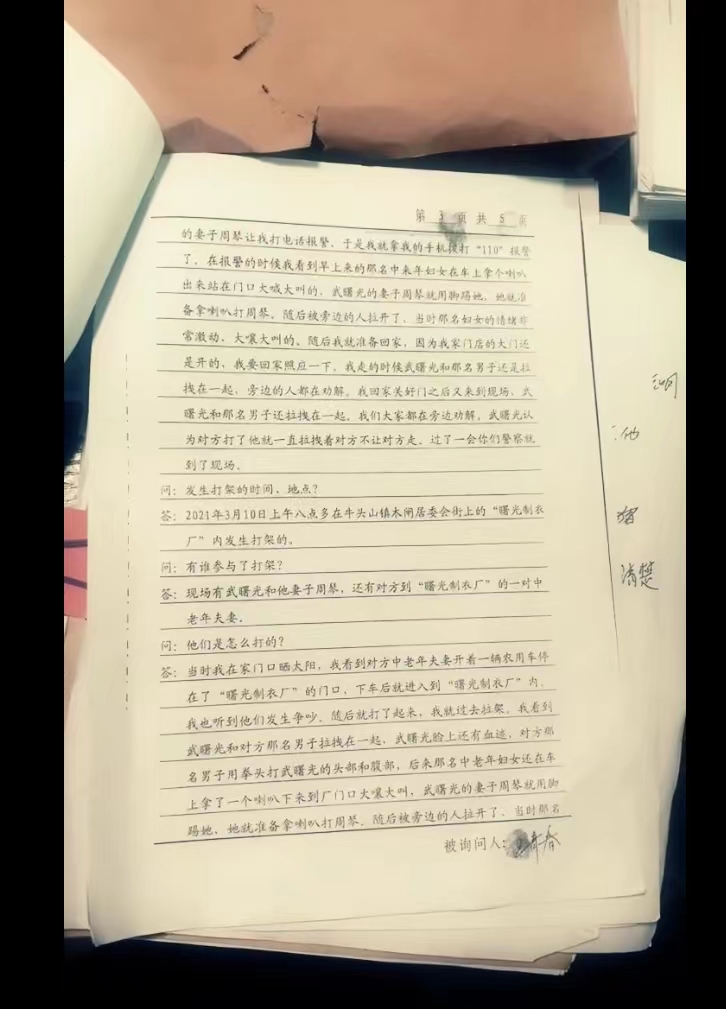 第 3 页 共 5 页
的妻子周琴让我打电话报警，于是我就拿我的手机拨打“110”报警
了，在报警的时候我看到早上来的那名中来年妇女在车上拿个喇叭
出来站在门口大喊大叫的，武曙光的妻子周琴就用脚踢她，她就准
备拿喇叭打周琴，随后被旁边的人拉开了，当时那名妇女的情绪非
常激动、大嚷大叫的，随后我就准备回家，因为我家门店的大门还
是开的，我要回家照应一下，我走的时候武曙光和那名男子还是拉
拽在一起，旁边的人都在劝解，我回家关好门之后又来到现场，武
曙光和那名男子还拉拽在一起，我们大家都在旁边劝解，武曙光认
为对方打了他就一直拉拽着对方不让对方走，过了一会你们警察就
到了现场。
问：发生打架的时间、地点？
答：2021年3月10日上午八点多在牛头山镇木闸居委会街上的“曙光制衣
厂”内发生打架的。
问：有谁参与了打架？
答：现场有武曙光和他妻子周琴，还有对方到“曙光制衣厂”的一对中
老年夫妻。
问：他们是怎么打的？
答：当时我在家门口晒太阳，我看到对方中老年夫妻开着一辆农用车停
在了“曙光制衣厂”的门口，下车后就进入到“曙光制衣厂”内，
我也听到他们发生争吵，随后就打了起来，我就过去拉架，我看到
武曙光和对方那名男子拉拽在一起，武曙光脸上还有血迹，对方那
名男子用拳头打武曙光的头部和腹部，后来那名中老年妇女还在车
上拿了一个喇叭下来到厂门口大嚷大叫，武曙光的妻子周琴就用脚
踢她，她就准备拿喇叭打周琴，随后被旁边的人拉开了，当时那名
被询问人：
他
清楚